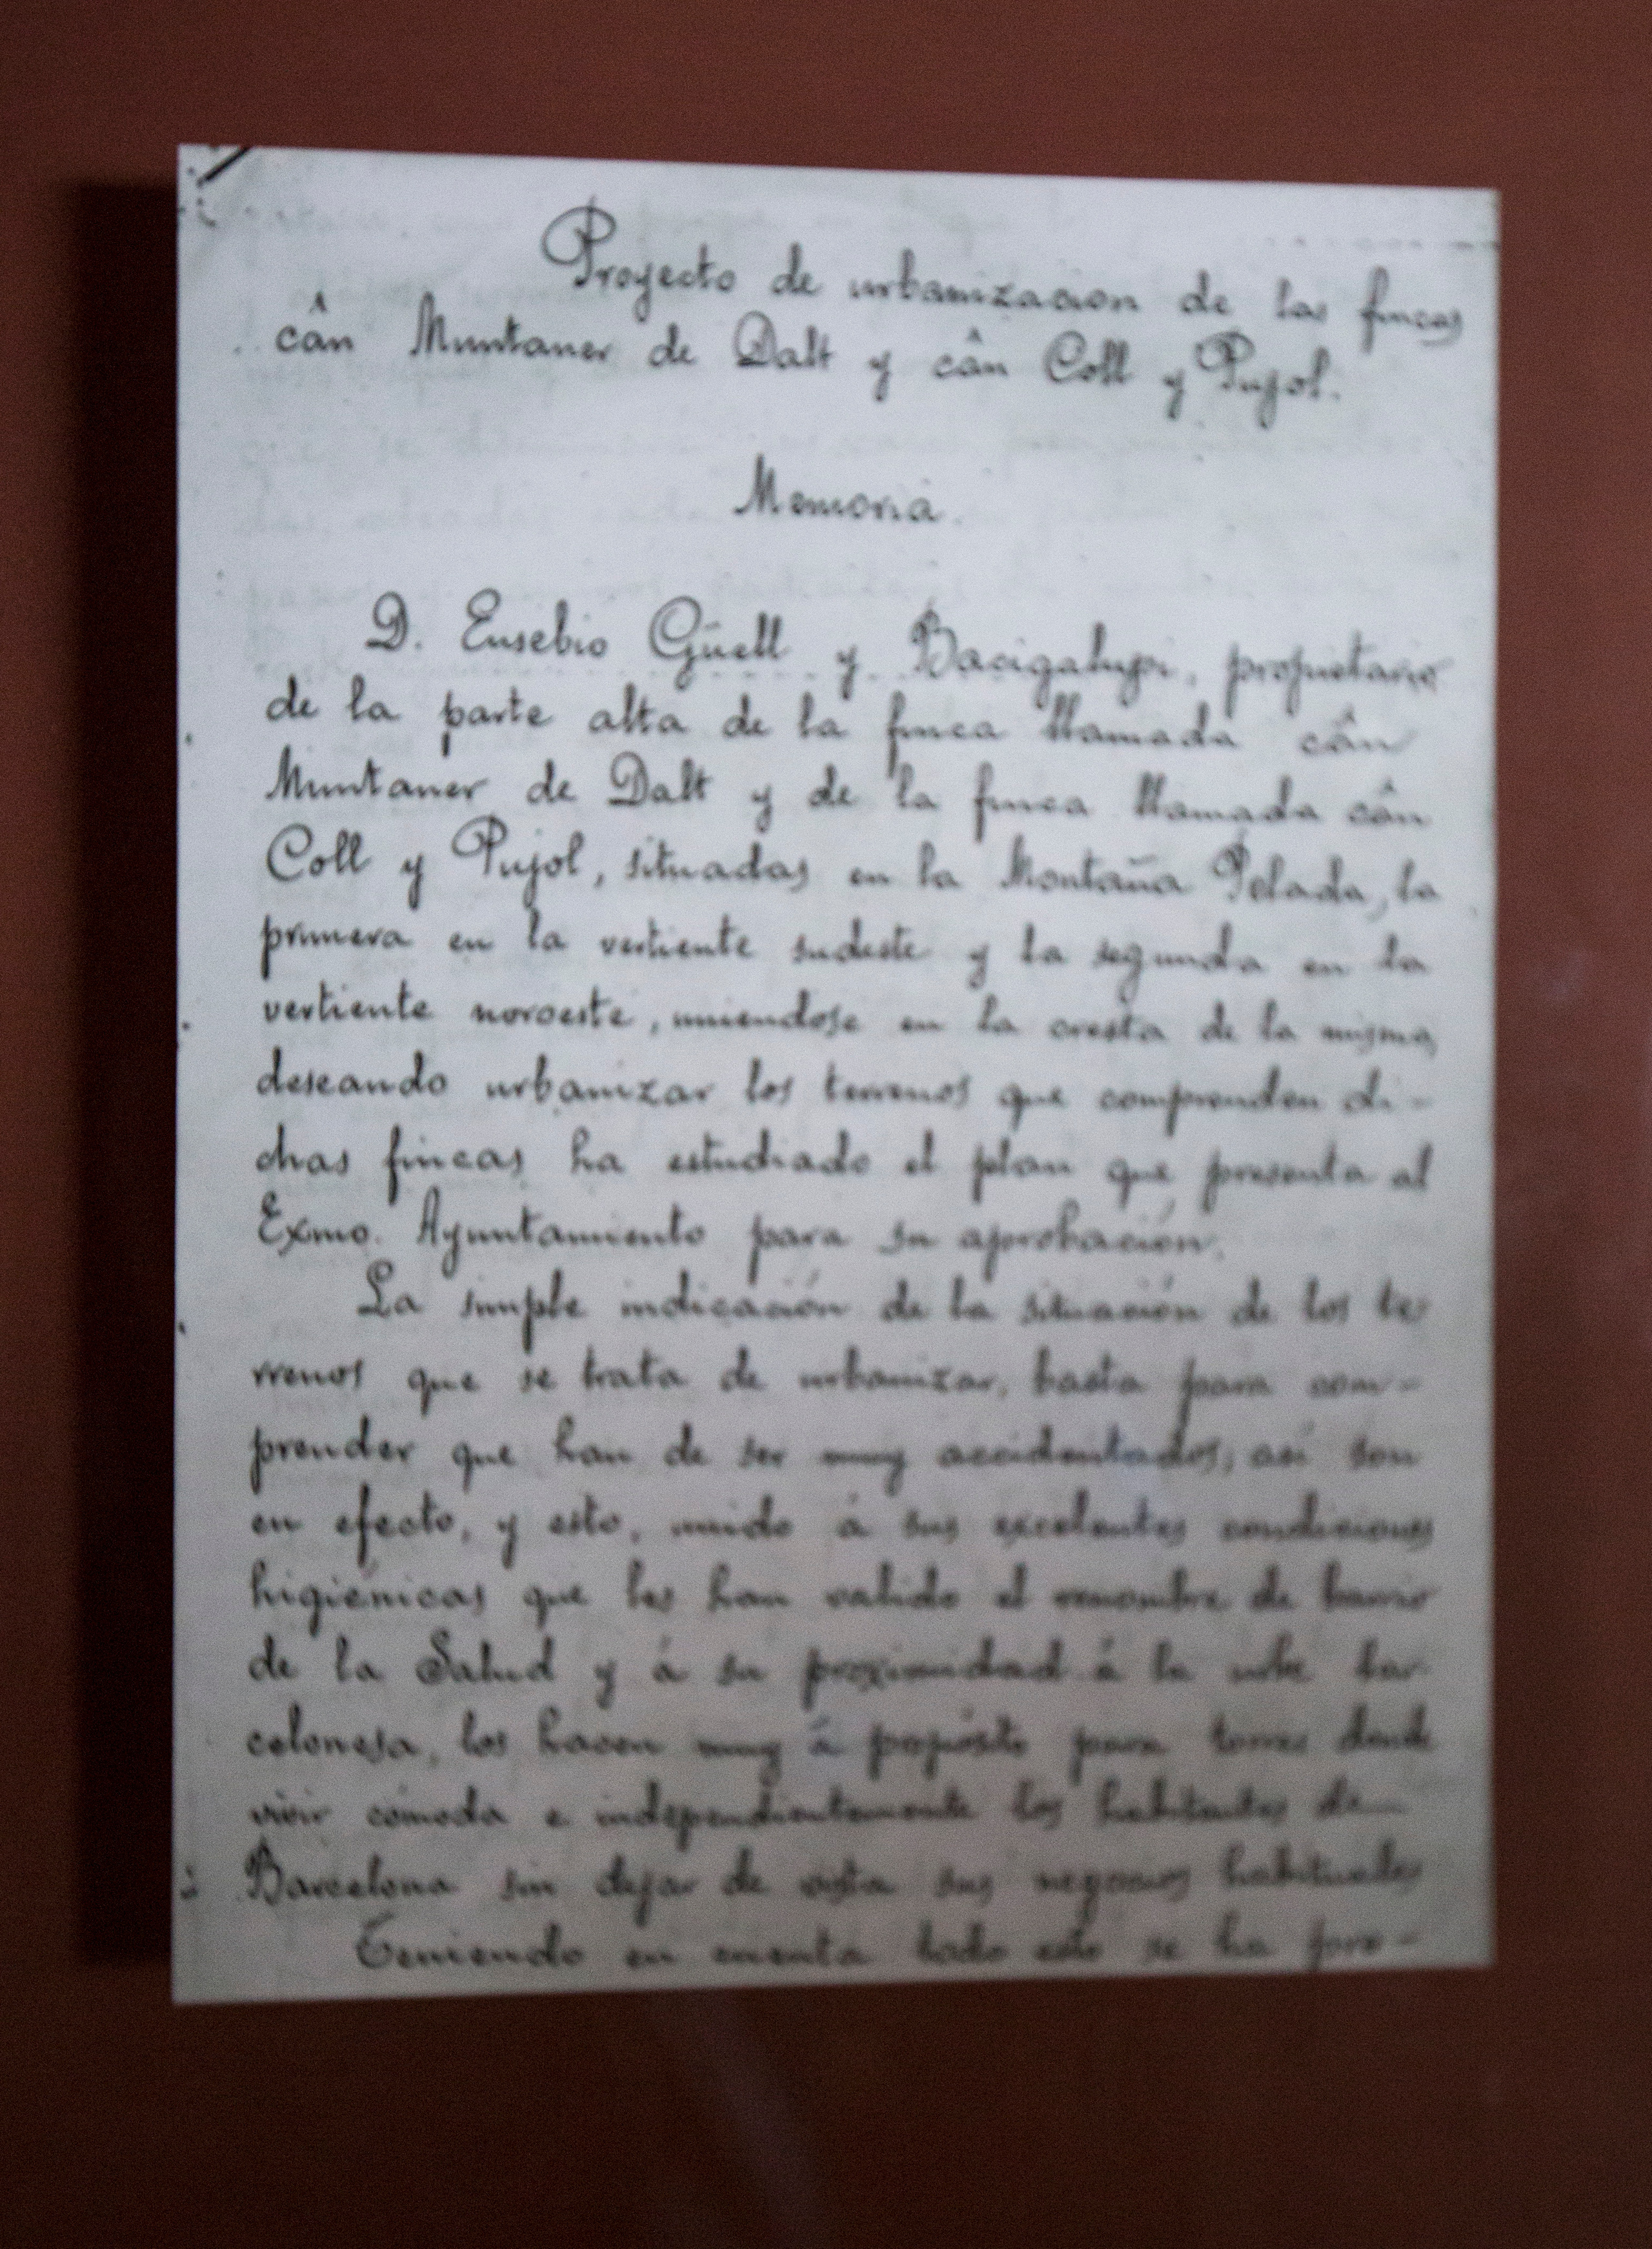 Proyecto de urbanizacion de las fincas
cân Muntaner de Dalt y cân Coll y Pujol.
Memoria.
D. Eusebio Güell y Bacigalupi, propietario
de la parte alta de la finca llamada cân
Muntaner de Dalt y de la finca llamada cân
Coll y Pujol, situadas en la Montaña Pelada, la
primera en la vertiente sudeste y la segunda en la
vertiente noroeste, uniendose en la cresta de la misma,
deseando urbanizar los terrenos que comprenden di-
chas fincas ha estudiado el plan que presenta al
Exmo. Ayuntamiento para su aprobación.
La simple indicación de la situación de los te
rrenos que se trata de urbanizar, basta para com-
prender que han de ser muy accidentados; así son
en efecto, y esto, unido á sus excelentes condiciones
higiénicas que les han valido el renombre de barrio
de la Salud y á su proximidad á la urbe bar
celonesa, los hacen muy á propósito para torres donde
vivir cómoda e independientemente los habitantes de
Barcelona sin dejar de vista sus negocios habituales
Teniendo en cuenta todo esto se ha pro-